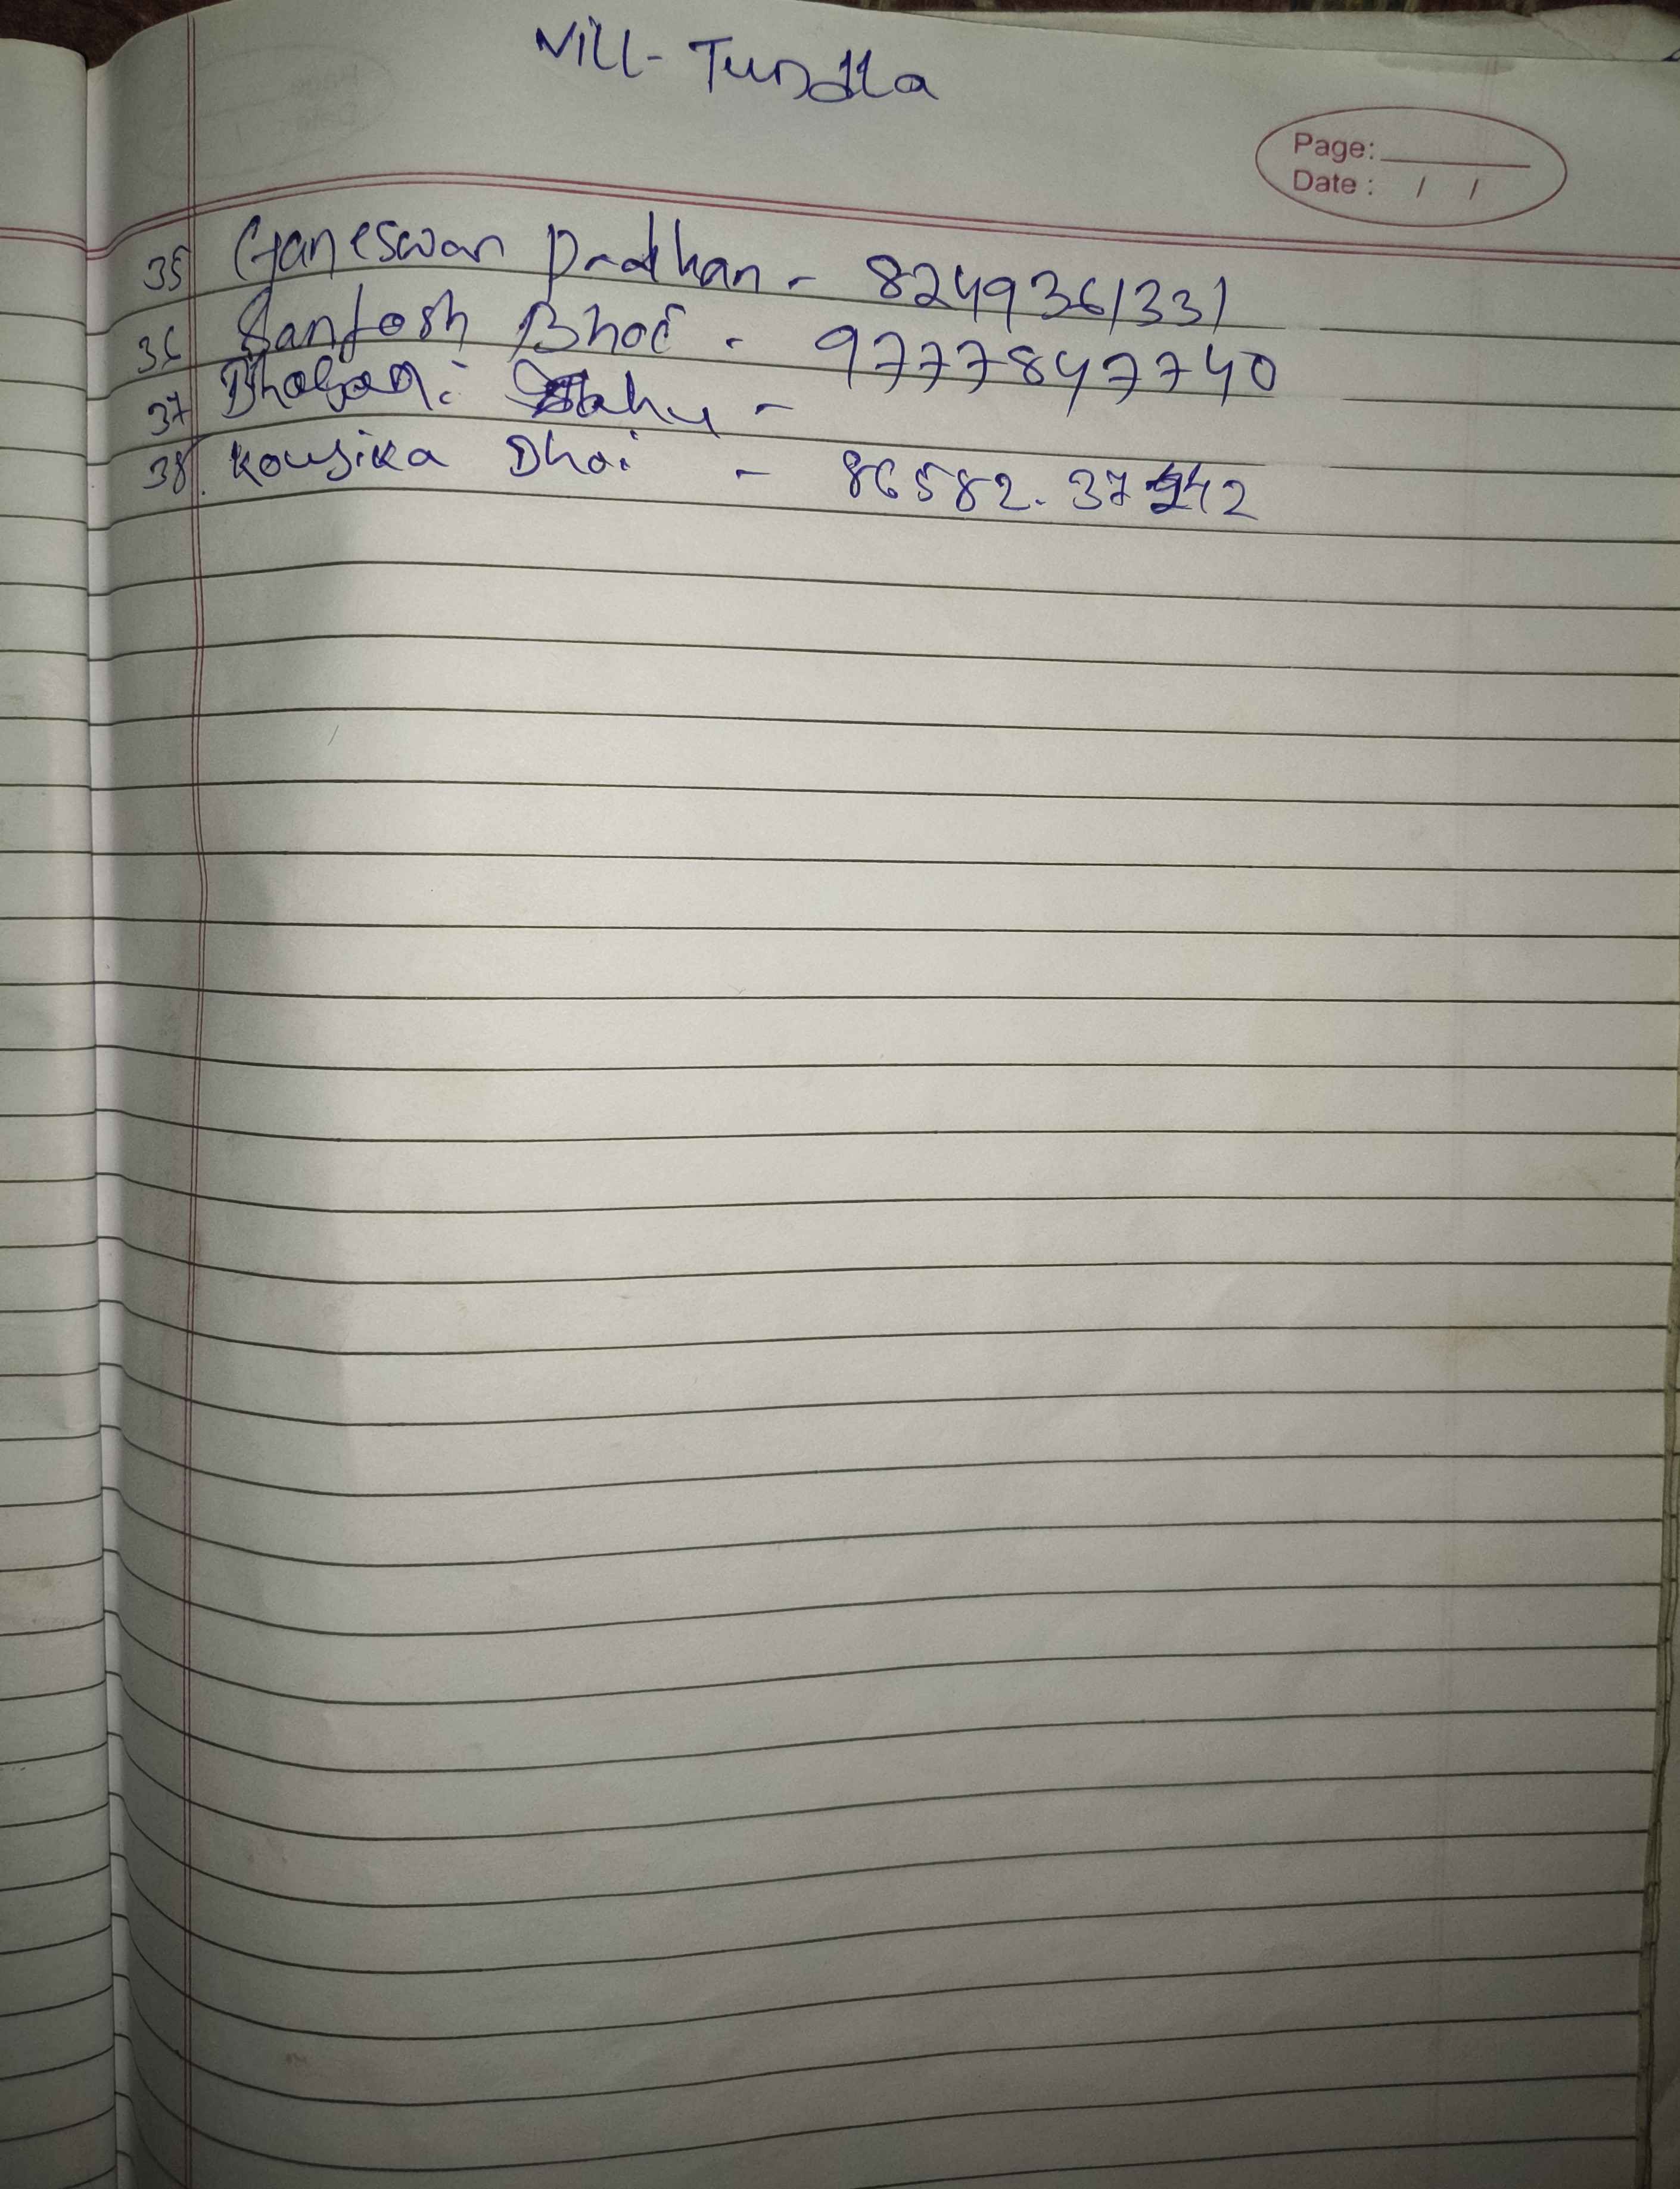 Vill- Tundla
Page:
Date: / /
35 Ganeswar Pradhan - 8249361331
36 Santosh Bhoi - 9777847740
37 Bhabani Sahu -
38. Kousika Bhoi - 86582. 37